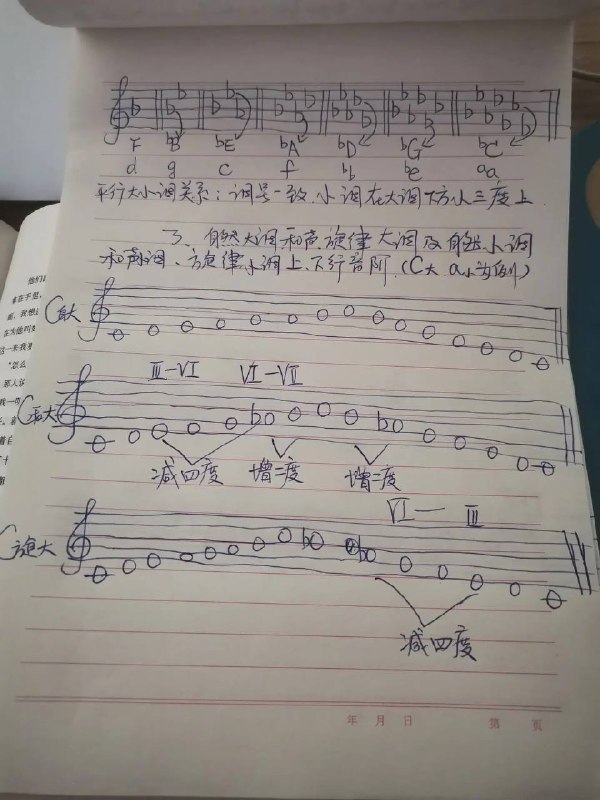 F ♭B ♭E ♭A ♭D ♭G ♭C
d g c f ♭b ♭e ♭a
平行大小调关系：调号一致，小调在大调下方小三度上．
3、自然大调和声、旋律大调及自然小调
和声小调、旋律小调上、下行音阶．(C大 a小为例)
C自大
III-VI VI-VII
C和大
减四度 增二度 增二度
VI— III
C旋大
减四度
年 月 日 第 页